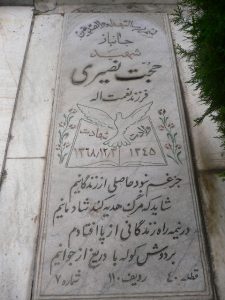 جانباز
شهید
حجت نصیری
فرزند نعمت اله
ولادت شهادت
۱۳۴۵ ۱۳۶۸/۱۲/۲
جز غم نبود حاصلی از زندگانیم
شاید که مرگ هدیه کند شادمانیم
در نیمه راه زندگانی از پا افتادم
بر دوش کوله بار دریغ از جوانیم
قطعه ۴۰ ردیف ۱۱۰ شماره ۷